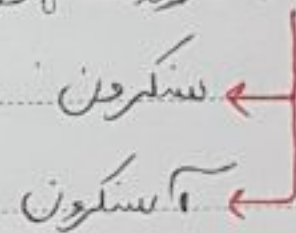 سنکرون
آسنکرون